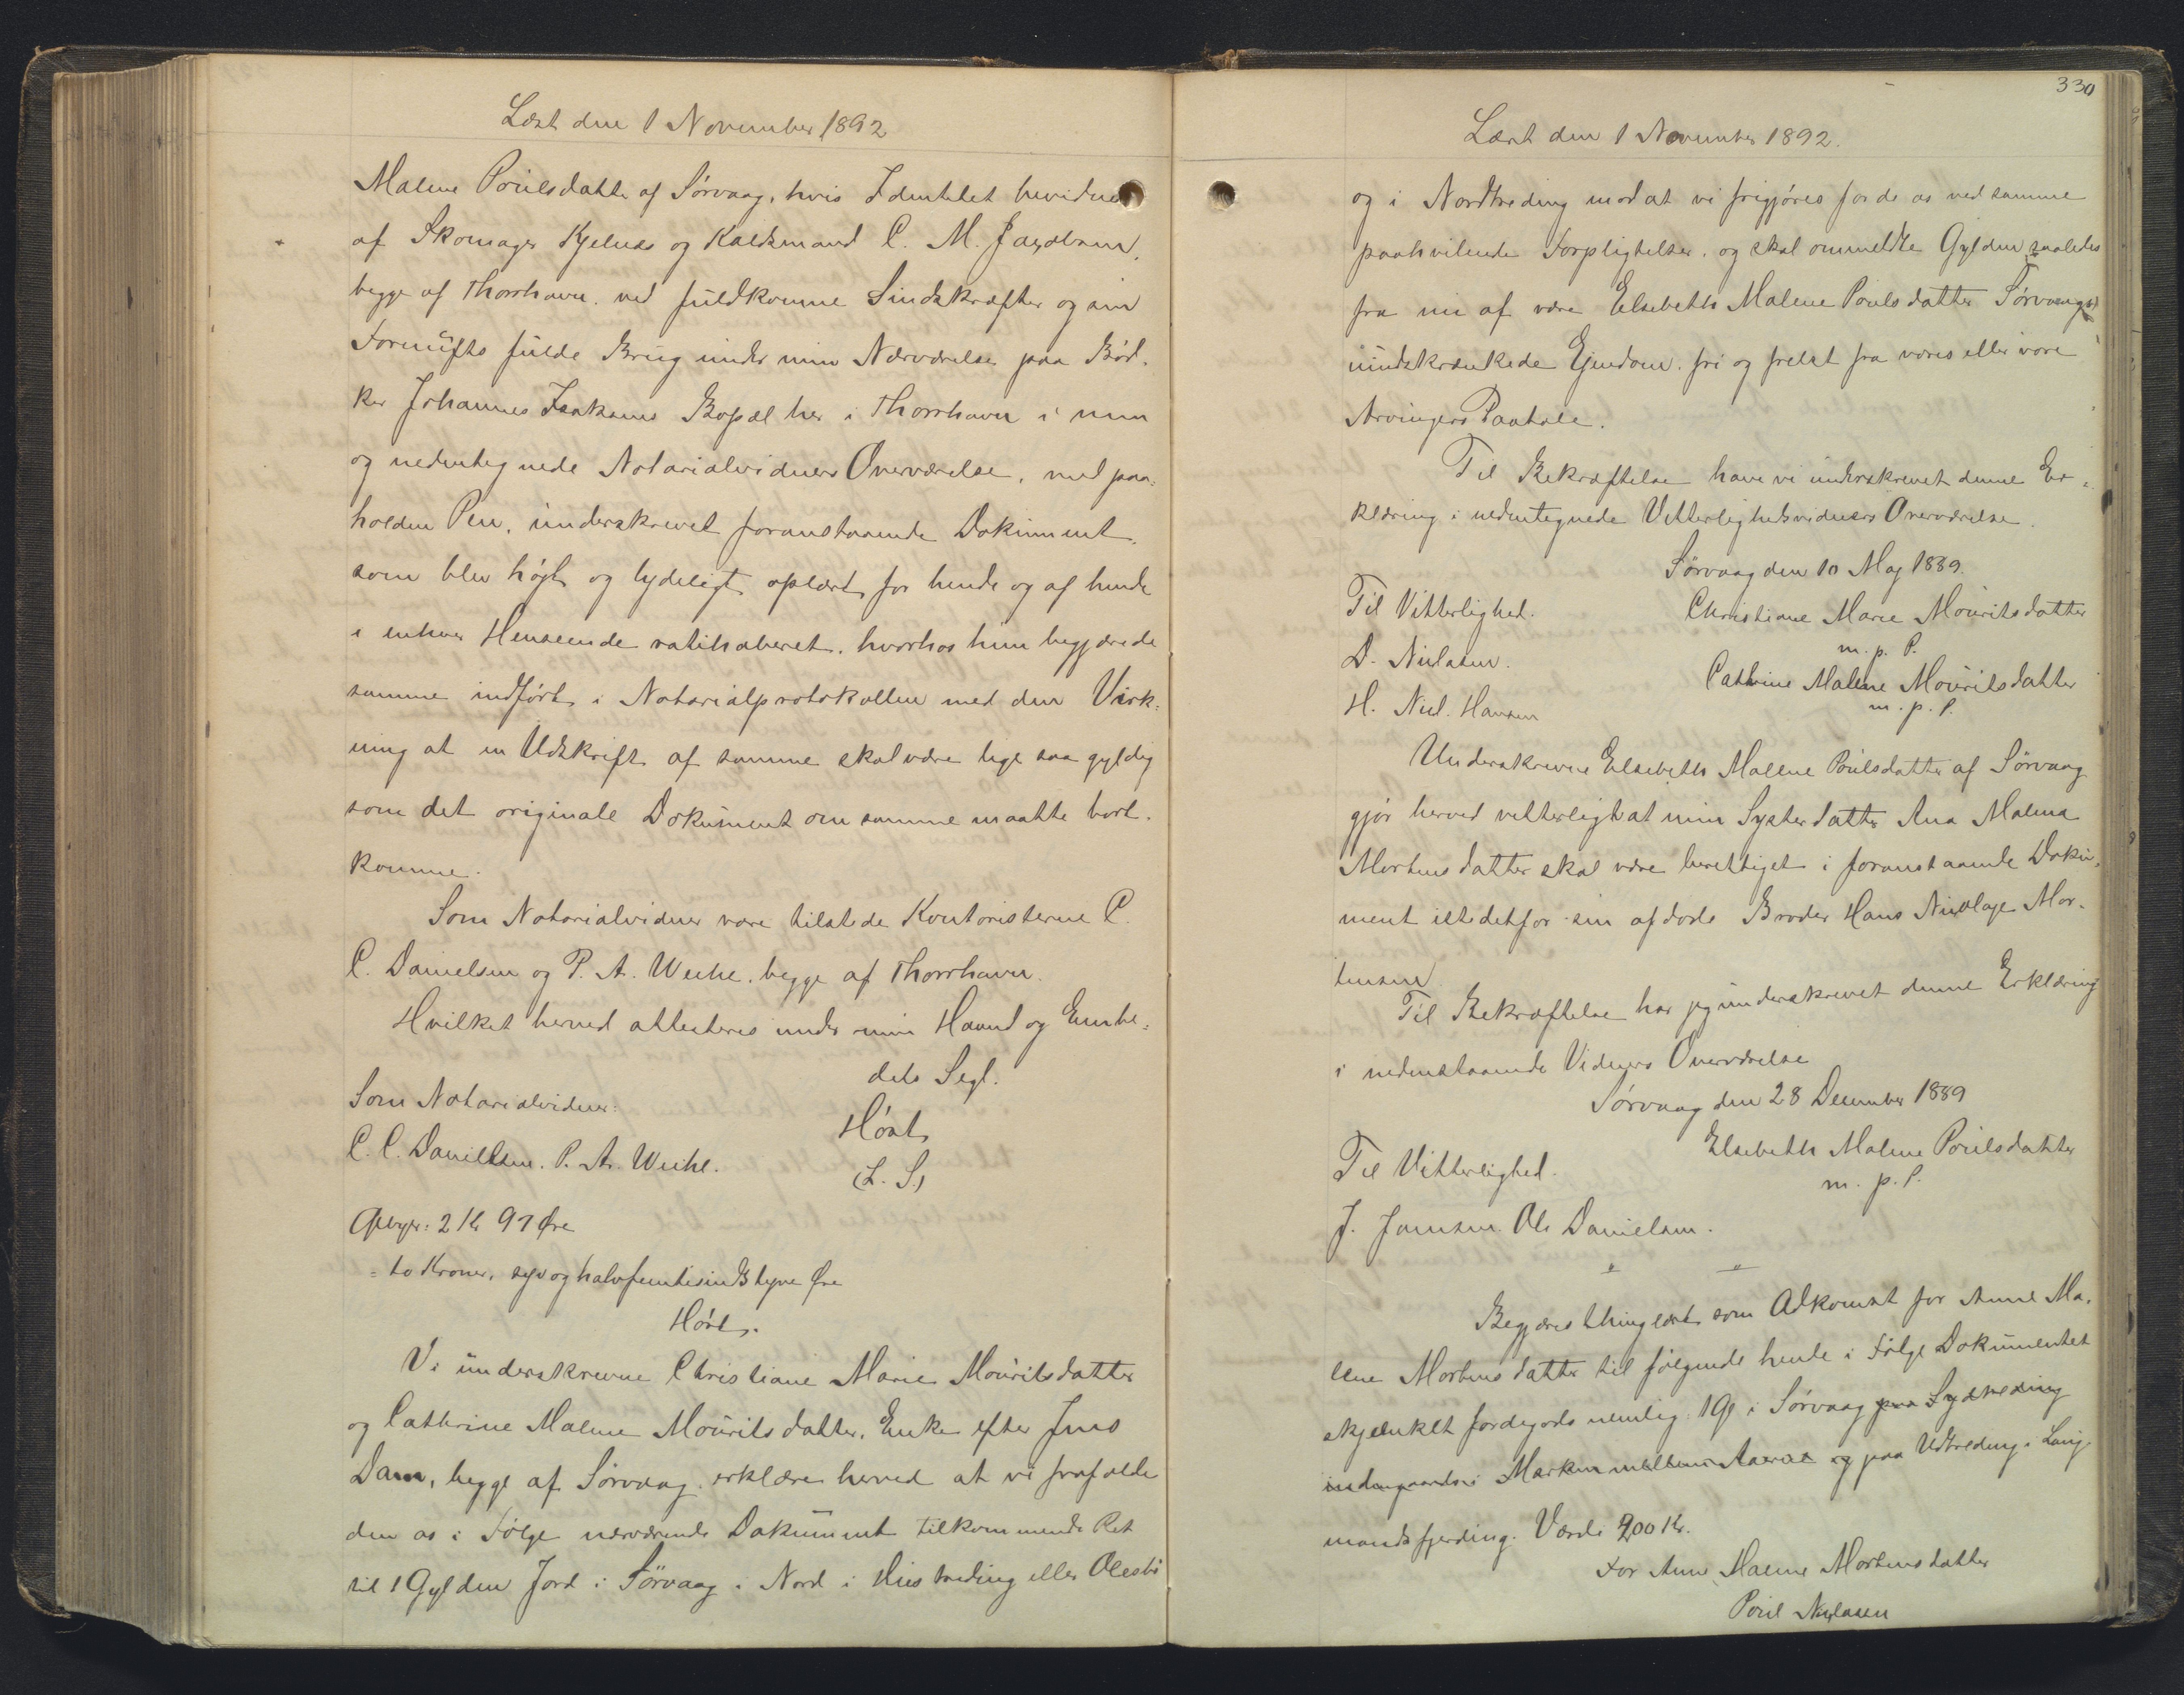 Læst den 1 November 1892
Malene Poulsdatter af Sørvaag, hvis Identitet bevidnes
af Skomager Kjelnæs og Kaldsmand C. M. Jacobsen,
begge af Thorshavn, ved fuldkomne Sindskræfter og sin
Fornufts fulde Brug under min Nærværelse paa Bød-
ker Johannes Isaksens Bopæl her i Thorshavn i min
og nedentegnede Notarialvidners Overværelse, med paa-
holden Pen, underskrevet foranstaaende Dokument,
som blev højt og tydeligt oplæst for hende og af hende
i enhver Henseende ratihaberet, hvorhos hun begjærede
samme indført i Notarialprotokollen med den Virk-
ning at en Udskrift af samme skal være lige saa gyldig
som det originale Dokument om samme maatte bort-
komme.
Som Notarialvidner vare tilstede Kontoristerne C.
C. Danielsen og P. A. Weihe, begge af Thorshavn.
Hvilket herved attesteres under min Haand og Embe-
dets Segl.
Som Notarialvidner:
Høst
C. C. Danielsen. P. A. Weihe.
(L. S.)
Gebyr: 2 Kr 97 Øre
= to Kroner, syv og halvfemtesindstyve Øre
Høst.
Vi underskrevne Christiane Marie Mouritsdatter
og Cathrine Malene Mouritsdatter, Enke efter Jens
Dam, begge af Sørvaag erklære herved at vi frafalde
den os i Følge nærværende Dokument tilkommende Ret
til 1 Gylden Jord i Sørvaag i Nord i Huustreding eller Olesbi
330
Læst den 1 November 1892.
og i Nordtreding mod at vi frigjøres for de os ved samme
paahvilende Forpligtelser, og skal ommeldte Gylden saaledes
fra nu af være Elsebeth Malene Poulsdatter Sørvaags
uindskrænkede Ejendom, fri og frelst fra vores eller vore
Arvingers Paatale.
Til Bekræftelse have vi underskrevet denne Er-
klæring i nedentegnede Vitterlighedsvidners Overværelse.
Sørvaag den 10 Maj 1889.
Til Vitterlighed.
Christiane Marie Mouritsdatter
m. p. P.
D. Nielsen.
Cathrine Malene Mouritsdatter
m. p. P.
H. Niel. Hansen
Underskrevne Elsebeth Malene Poulsdatter af Sørvaag
gjør herved vitterligt at min Systerdatter Ana Malena
Mortensdatter skal være berettiget i foranstaaende Doku-
ment istedetfor sin afdøde Broder Hans Nicolaje Mor-
tensen
Til Bekræftelse har jeg underskrevet denne Erklæring
i nedenstaaende Vidners Overværelse
Sørvaag den 28 December 1889
Elsebeth Malene Poulsdatter
m. p. P.
Til Vitterlighed.
J. Joensen. Ole Danielsen.
" "
Begjæres thinglæst som Adkomst for Anne Ma-
lene Mortensdatter til følgende hende i Følge Dokumentet
skjænket Jordegods nemlig: 1 Gl i Sørvaag paa Sydtreding
indengaards i Marken mellem Aaerne og paa Udtreding i Lang-
mandsfjerding. Værdi 200 Kr.
For Anne Malene Mortensdatter
Poul Niclasen